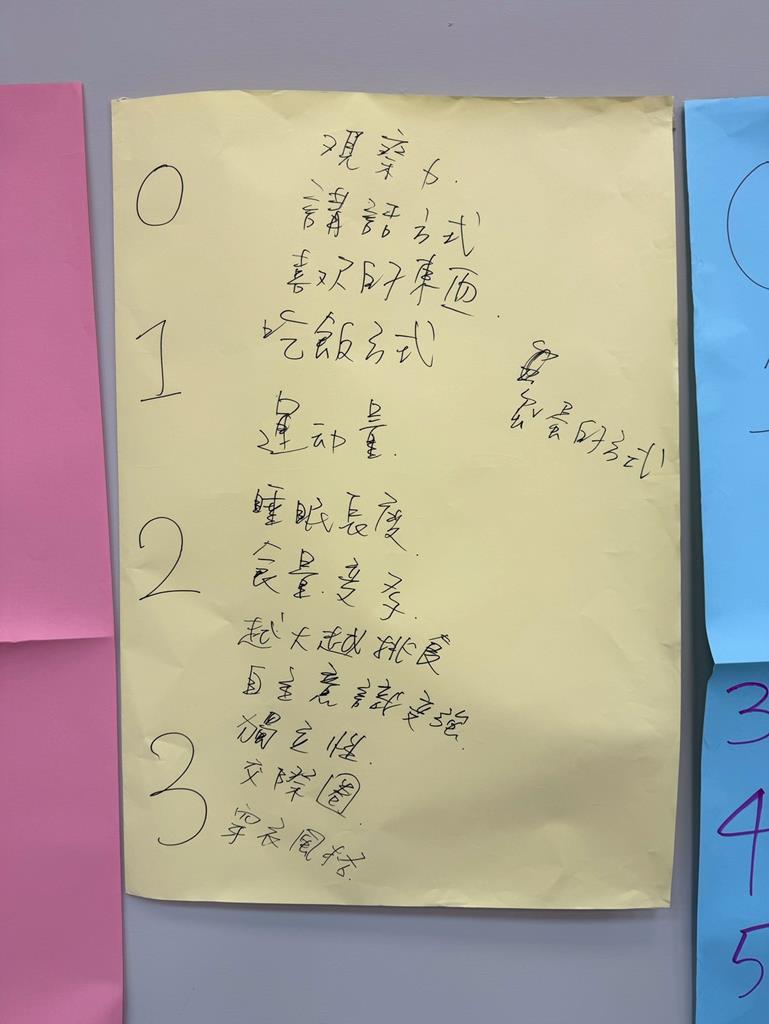 0
觀察力.
講話方式
喜欢的東西.
1
吃飯方式
運动量.
的方式
2
睡眠長度.
食量.变多.
越大越挑食
自主意識变強.
獨立性.
3
交際圈.
穿衣風格.
3
4
5